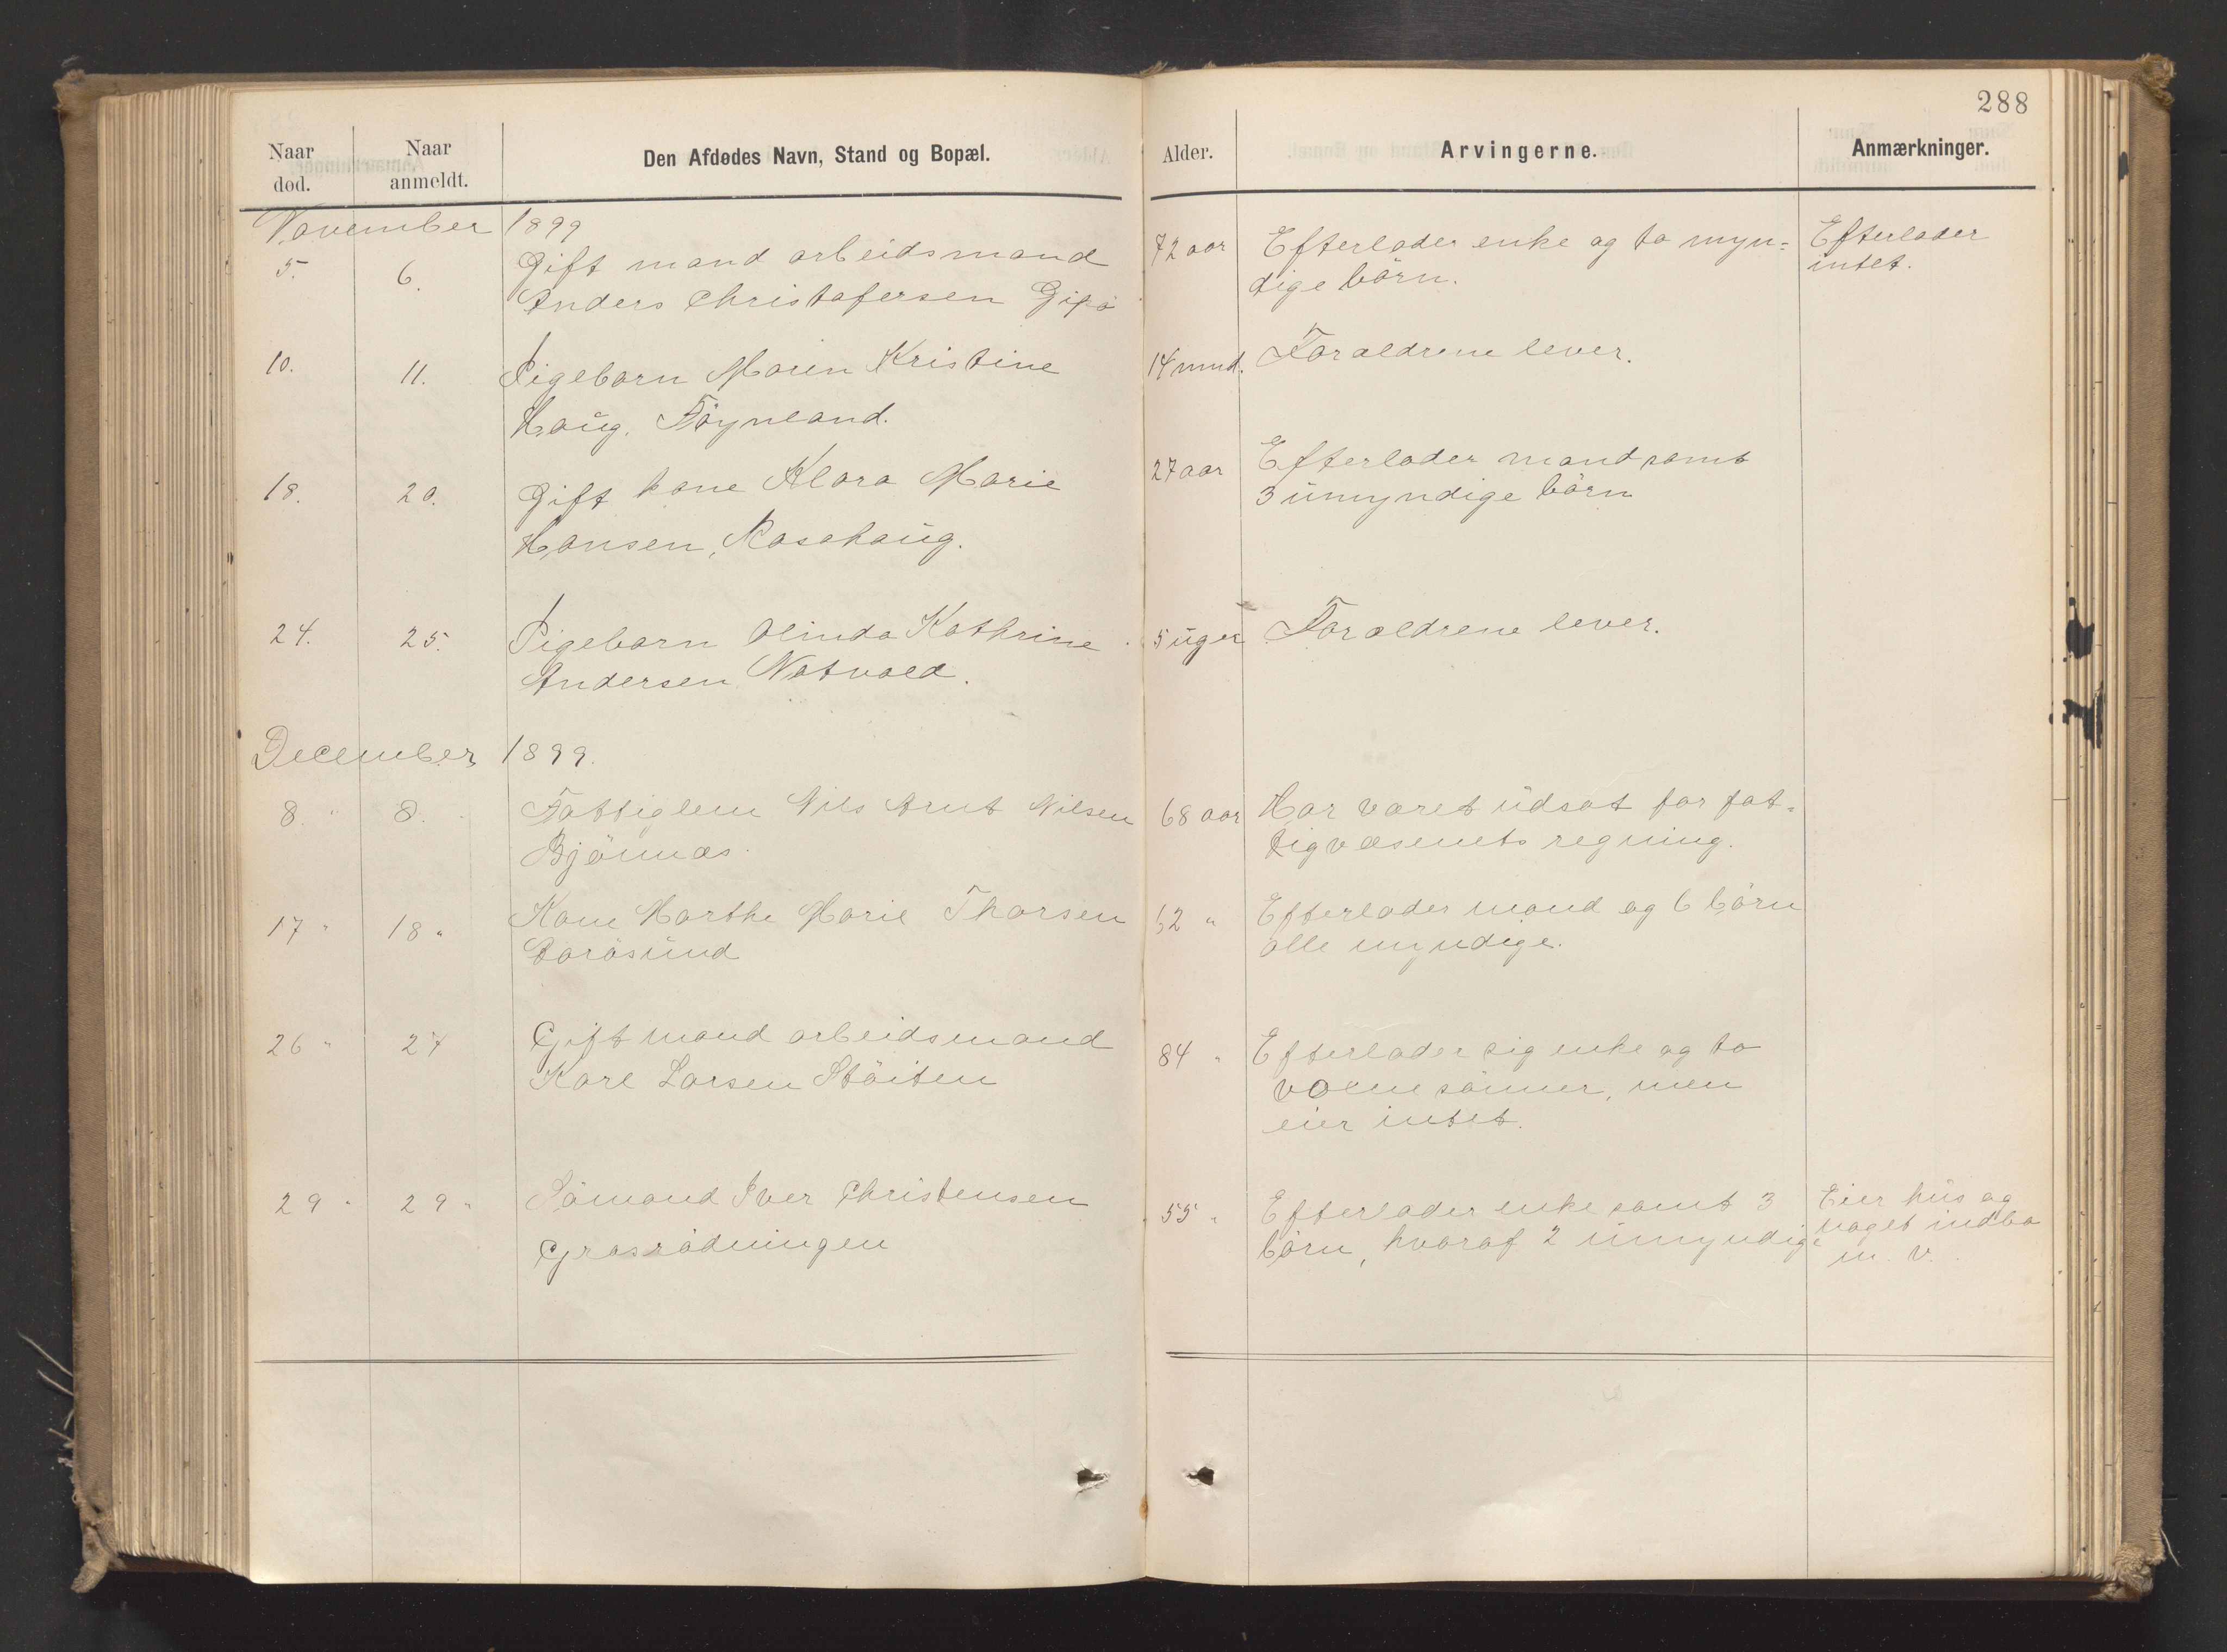 288
Naar død. Naar anmeldt. Den Afdødes Navn, Stand og Bopæl. Alder. Arvingerne. Anmærkninger.
November 1899
5. 6. Gift mand arbeidsmand 72 aar Efterlader enke og to myn= Efterlader
Anders Christofersen Gipö dige börn. intet.
10. 11. Pigebarn Maren Kristine 14 mnd. Forældrene lever.
Haug. Föynland.
18. 20. Gift kone Klara Marie 27 aar Efterlader mand samt
Hansen, Rosehaug. 3 umyndige börn
24. 25. Pigebarn Olinda Kathrine 5 uger Forældrene lever.
Andersen Natvald.
December 1899.
8. 8. Fattiglem Nils Arnt Nilsen 68 aar Har været udsat for fat=
Bjönnæs. tigvæsenets regning.
17 " 18 " Kone Marthe Marie Thorsen 62 " Efterlader mand og 6 börn
alle myndige.
26 " 27 Gift mand arbeidsmand 84 " Efterlader sig enke og to
Karl Larsen Stöiten voxne sönner, men
eier intet.
29 " 29 " Sömand Iver Christensen 55 " Efterlader enke samt 3 Eier hus og
Grasrödningen börn, hvoraf 2 umyndige noget indbo
m. v.